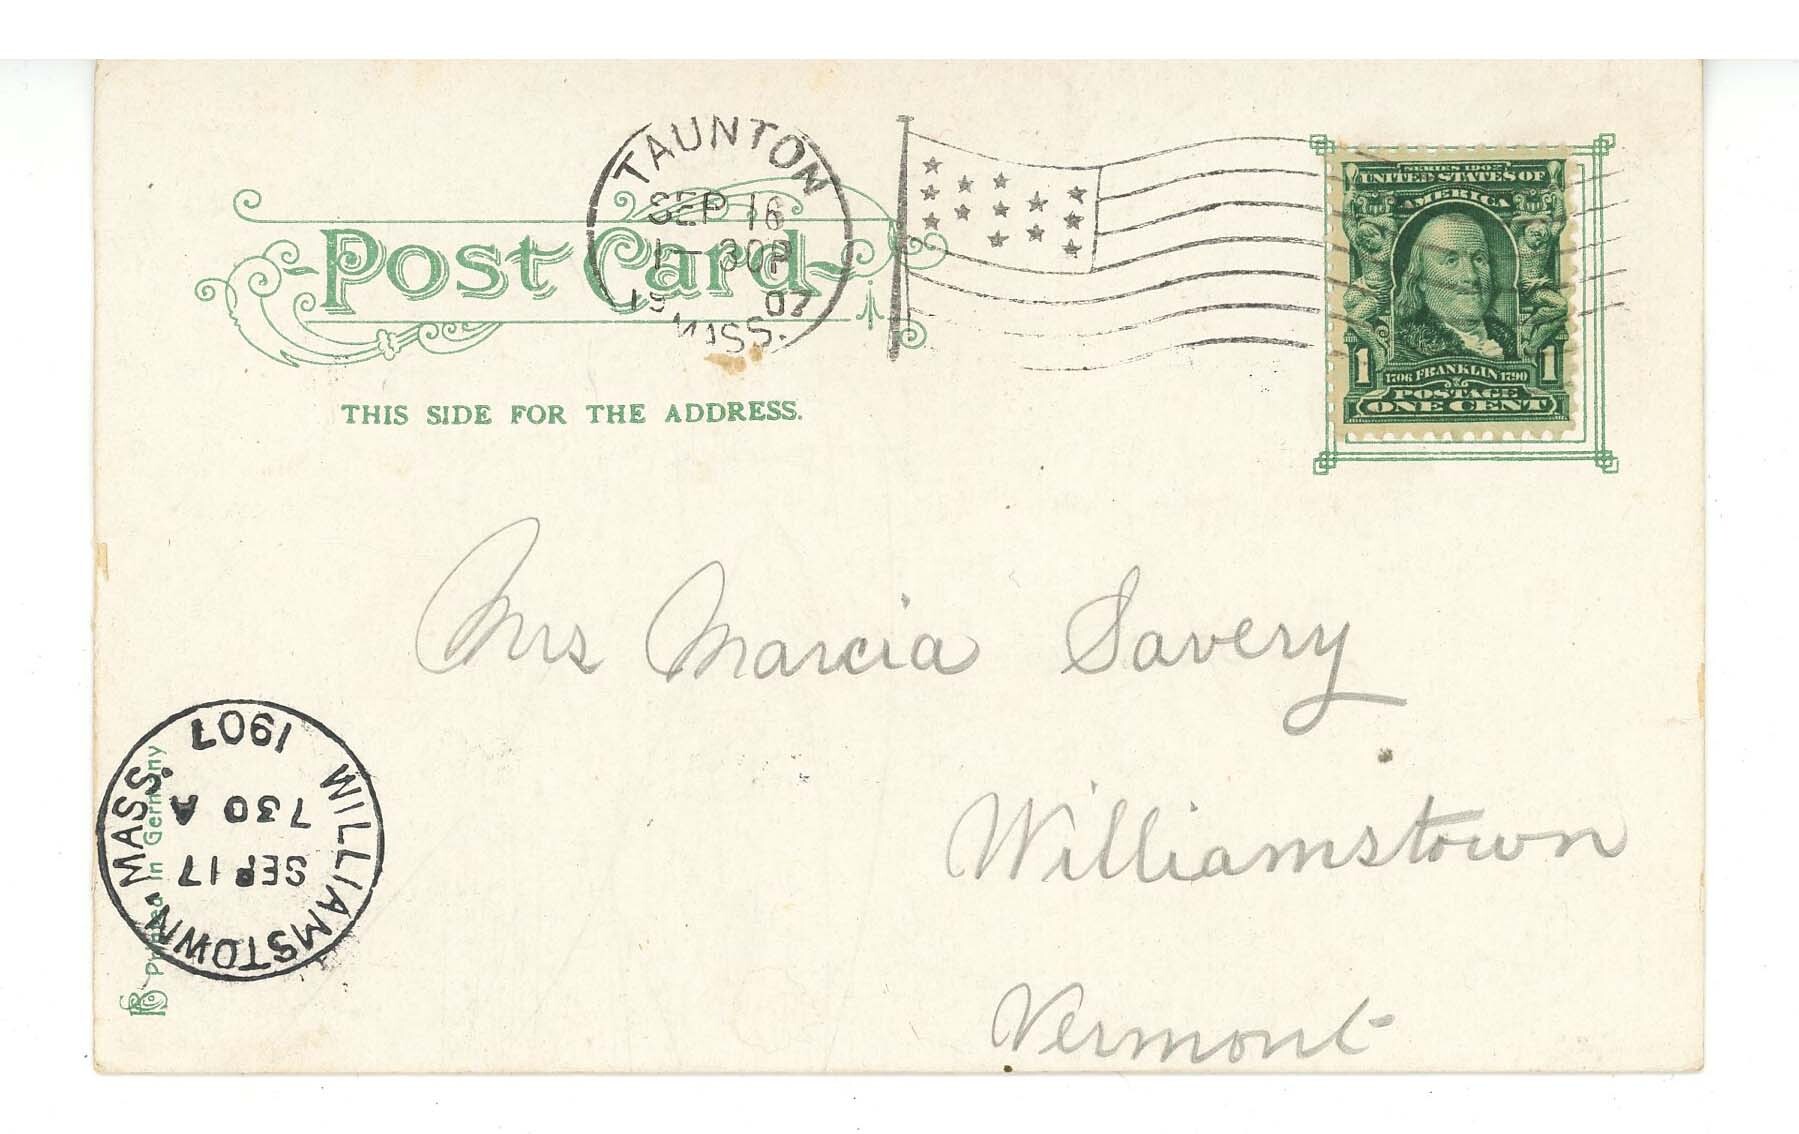 TAUNTON
SEP 16
1-30P
19 07
MASS.
Post Card
THIS SIDE FOR THE ADDRESS.
SERIES 1902
UNITED STATES OF
AMERICA
1 1
1706 FRANKLIN 1790
POSTAGE
ONE CENT
Mrs Marcia Savery
Williamstown
Vermont
WILLIAMSTOWN, MASS.
SEP 17
730 A
1907
Printed in Germany